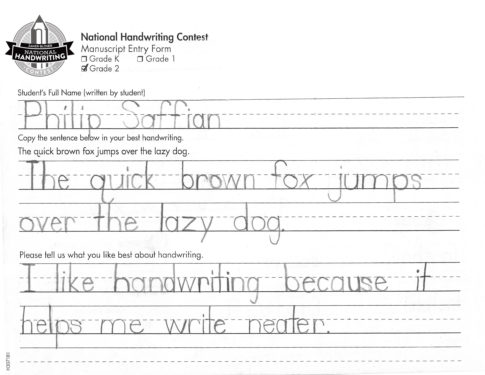 ZANER-BLOSER
NATIONAL
HANDWRITING
CONTEST
National Handwriting Contest
Manuscript Entry Form
Grade K Grade 1
Grade 2
Student's Full Name (written by student)
Philip Saffian
Copy the sentence below in your best handwriting.
The quick brown fox jumps over the lazy dog.
The quick brown fox jumps
over the lazy dog.
Please tell us what you like best about handwriting.
I like handwriting because it
helps me write neater.